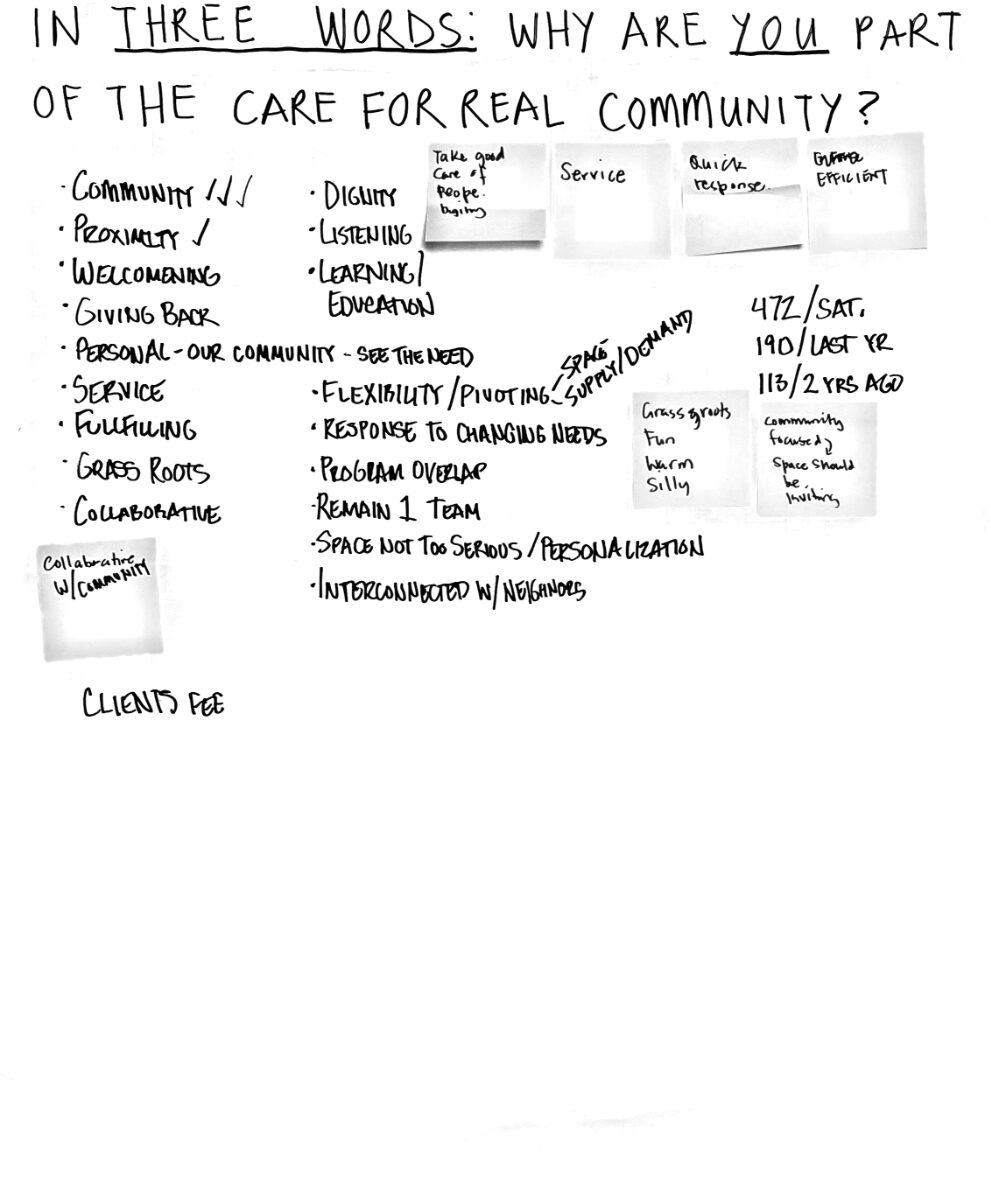 IN THREE WORDS: WHY ARE YOU PART
OF THE CARE FOR REAL COMMUNITY?
· COMMUNITY ✓✓✓
· PROXIMITY ✓
· WELCOMENING
· GIVING BACK
· PERSONAL - OUR COMMUNITY - SEE THE NEED
· SERVICE
· FULLFILLING
· GRASS ROOTS
· COLLABORATIVE
· DIGNITY
· LISTENING
· LEARNING/
EDUCATION
· FLEXIBILITY/PIVOTING
SPACE
SUPPLY/DEMAND
· RESPONSE TO CHANGING NEEDS
· PROGRAM OVERLAP
· REMAIN 1 TEAM
· SPACE NOT TOO SERIOUS/PERSONALIZATION
· INTERCONNECTED W/NEIGHNORS
Take good
Care of
Peope.
Service
Quick
response.
EFFICIENT
472/SAT.
190/LAST YR
113/2 YRS AGO
Grassroots
Fun
Warm
Silly
Community
focused
Space should
be
inviting
Collabrative
W/COMMUNITY
CLIENTS FEE